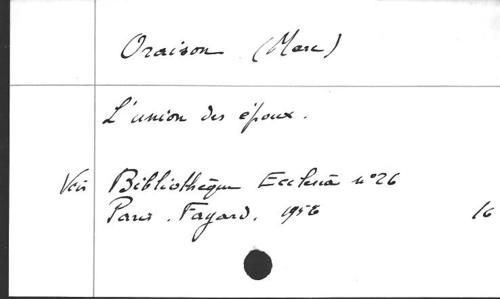 Oraison (Marc)
L'union des époux.
Voir Bibliothèque Ecclesia n°26
Paris. Fayard. 1956 16